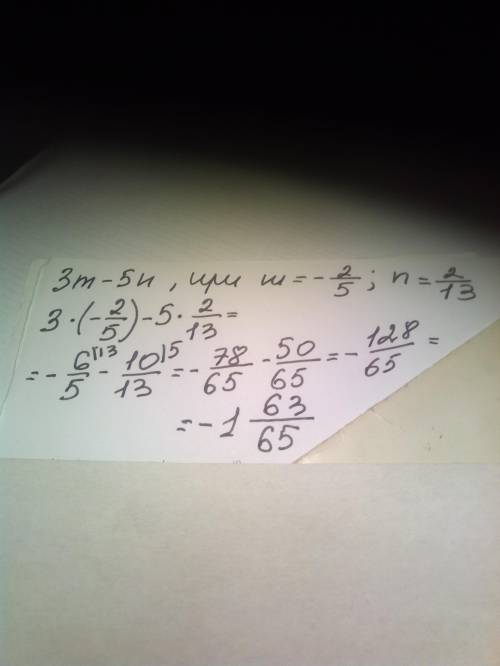 3m - 5n, при m = -2/5; n = 2/13
3 · (-2/5) - 5 · 2/13 =
= -6/5 |13 - 10/13 |5 = -78/65 - 50/65 = -128/65 =
= -1 63/65